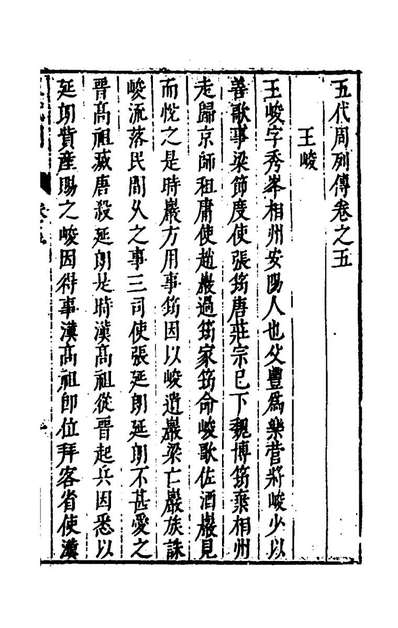 五代周列傳卷之五
王峻
王峻字秀峯相州安陽人也父豐為樂營將峻少以
善歌事梁節度使張筠唐莊宗已下魏博筠棄相州
走歸京師租庸使趙巖過筠家筠命峻歌佐酒巖見
而恱之是時巖方用事筠因以峻遺巖梁亡巖族誅
峻流落民間久之事三司使張延朗延朗不甚愛之
晉高祖滅唐殺延朗是時漢高祖從晉起兵因悉以
延朗貲産賜之峻因得事漢高祖即位拜客省使漢